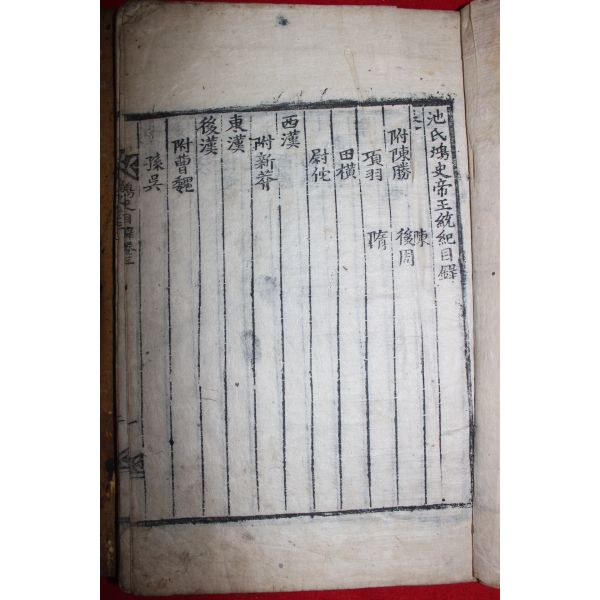 池氏鴻史帝王統紀目錄
附陳勝
後周
陳
項羽
隋
田橫
尉佗
西漢
附新莽
東漢
後漢
附曹魏
孫吳
鴻史目錄卷三